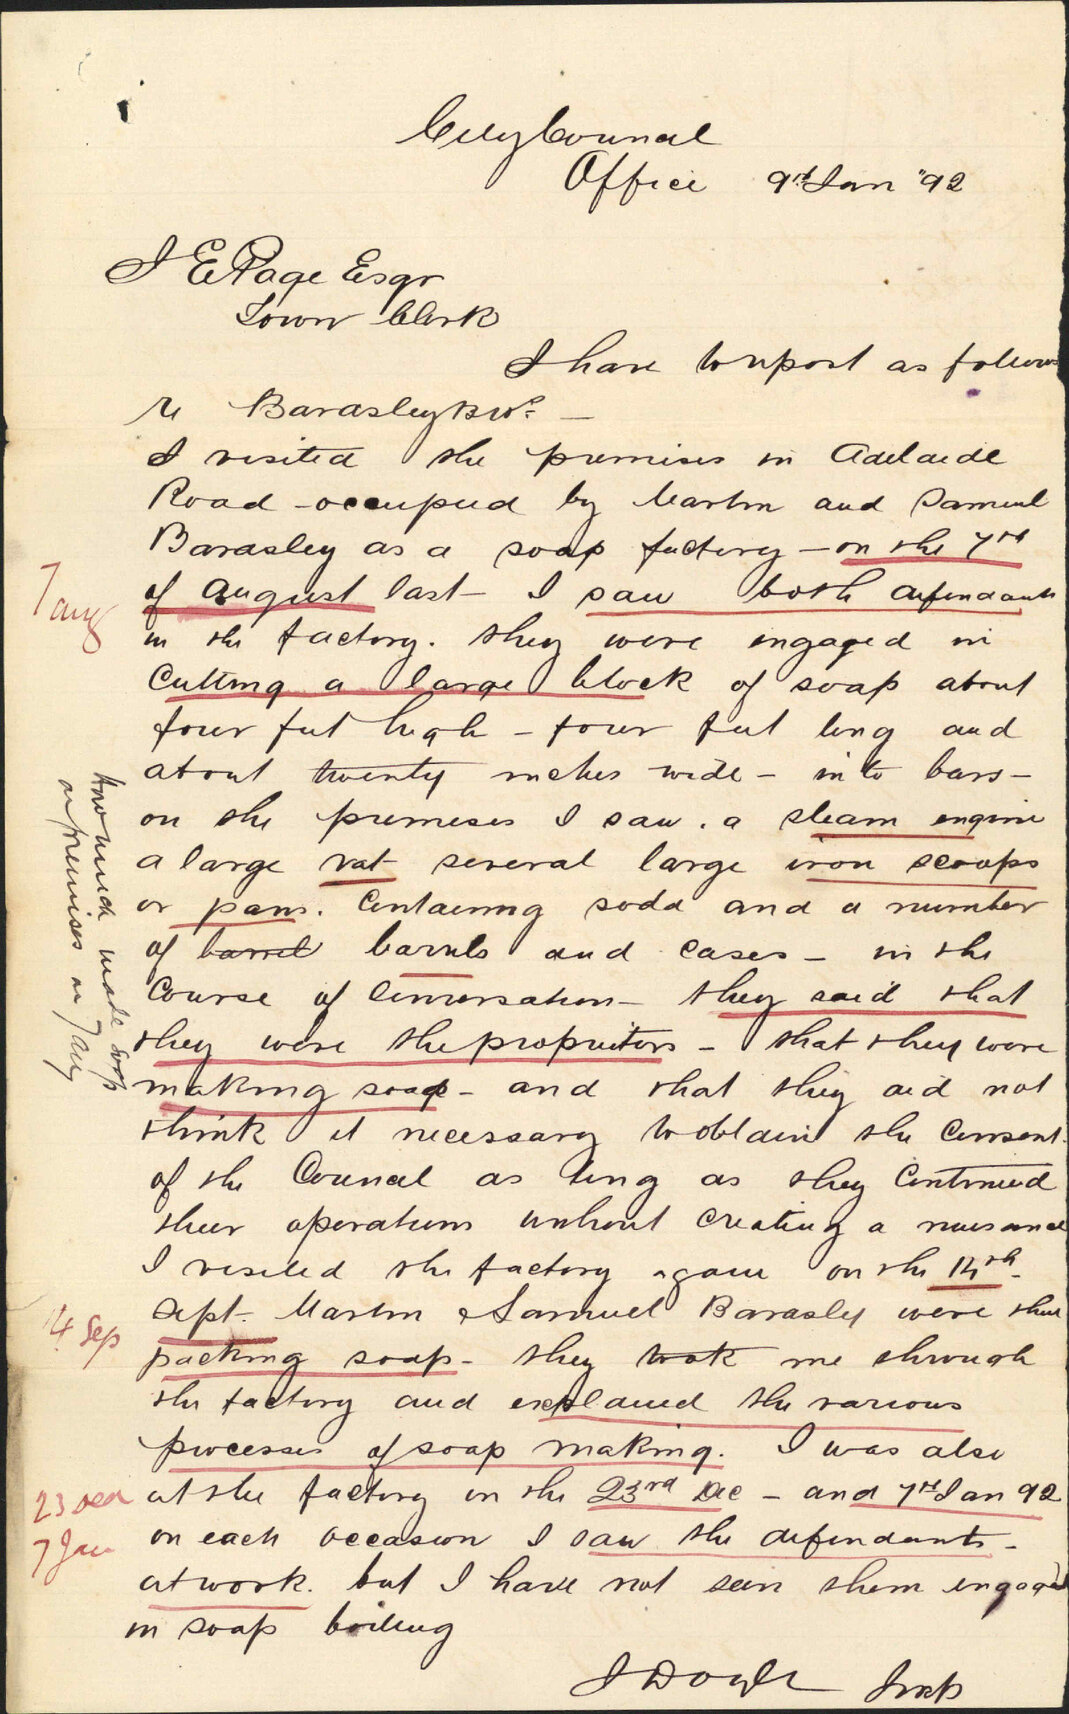 City Council
Office 9th Jan "92
J E Page Esqr
Town Clerk
I have to report as follows
re Barasley Bros. —
I visited the premises in Adelaide
Road - occupied by Martin and Samuel
Barasley as a soap factory — on the 7th
7 aug
of August last - I saw both defendants
in the factory. they were engaged in
Cutting a large block of soap about
four feet high - four feet long and
about twenty inches wide - into bars -
on the premises I saw . a steam engine
a large vat several large iron scoops
or pans. Containing soda and a number
of barrel barrels and cases - in the
Course of Conversation - they said that
they were the proprietors - that they were
making soap - and that they did not
think it necessary to obtain the Consent
of the Council as long as they Continued
their operations without creating a nuisance
How much made soap
on premises on 7 Aug
I visited the factory again on the 14th -
14 Sep
Sept. Martin & Samuel Barasley were then
packing soap - they took me through
the factory and explained the various
processes of soap making. I was also
23 Dec
at the factory on the 23rd Dec - and 7th Jan 92
7 Jan
on each occasion I saw the defendants -
at work. but I have not seen them engaged
in soap boiling
J Doyle Insp